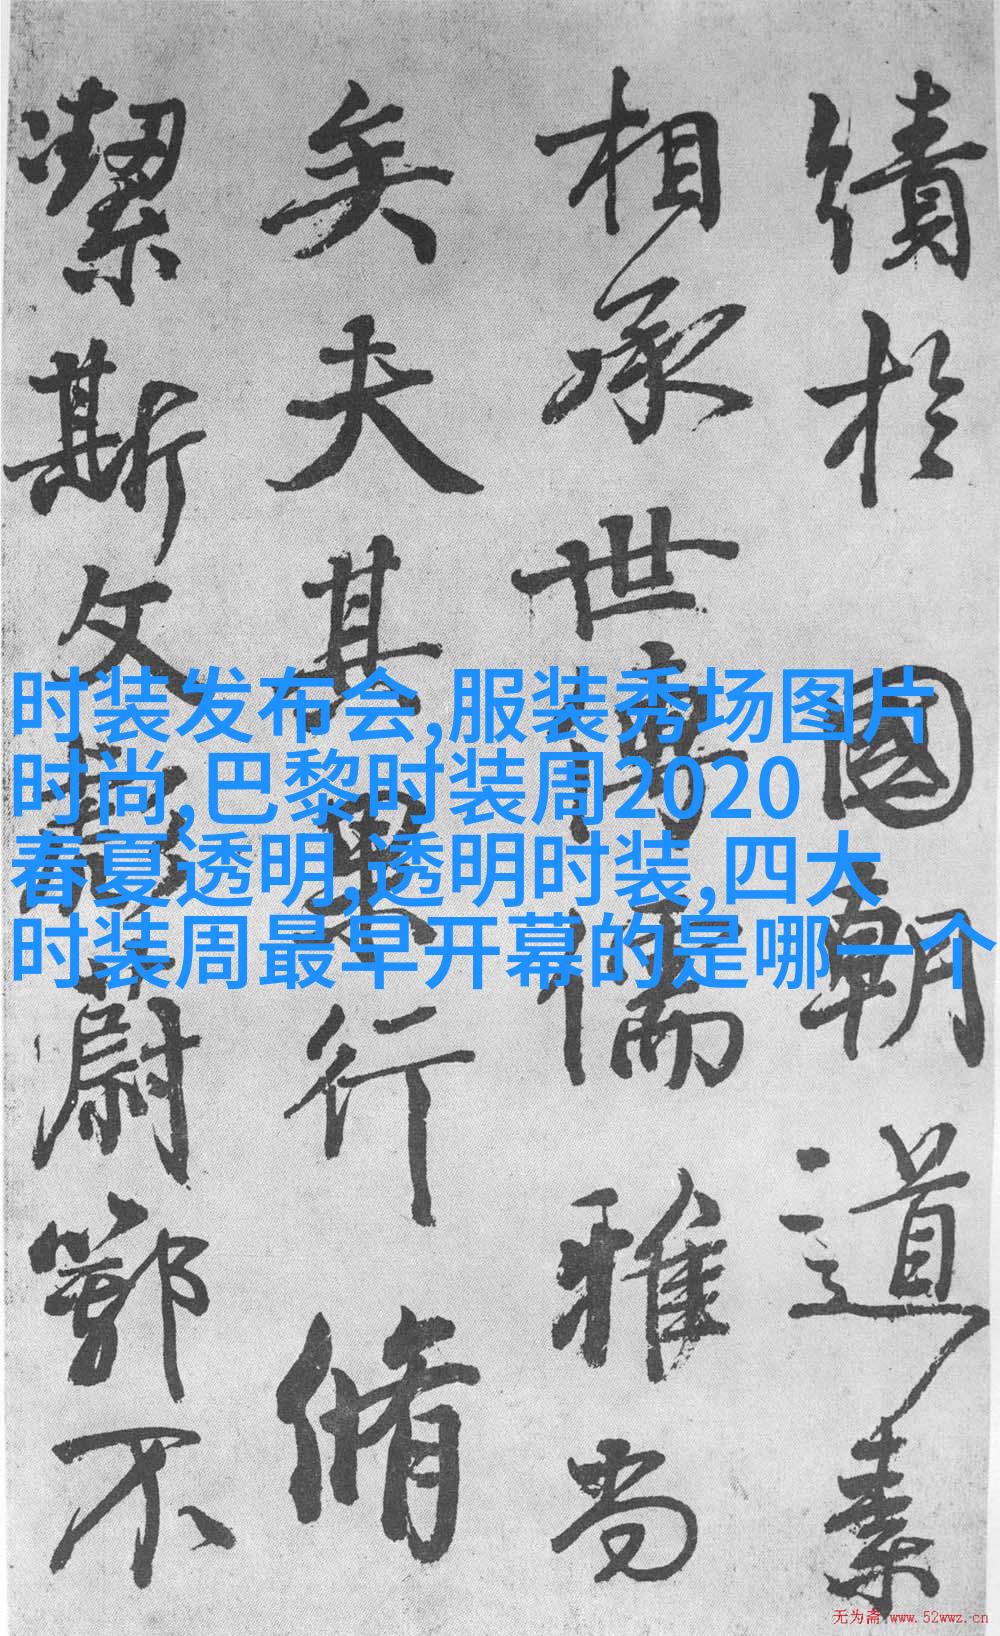 績於國朝道素
相承世傳儒雅尚
矣夫其行脩
潔斯文蔚鄂不
时装发布会,服装秀场图片
时尚,巴黎时装周2020
春夏透明,透明时装,四大
时装周最早开幕的是哪一个
无为斋 www.52wwz.cn